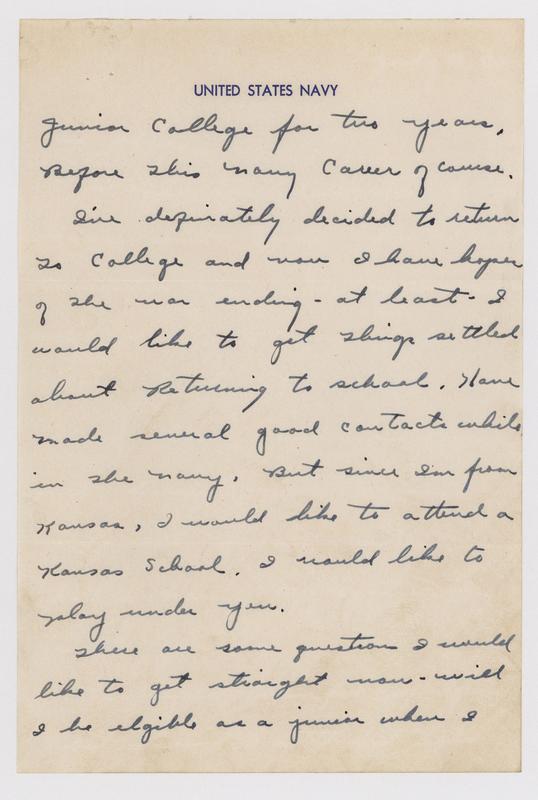 UNITED STATES NAVY
Junior College for two years,
Before this navy Career of course.
I've definately decided to return
to College and now I have hopes
of the war ending - at least - I
would like to get things settled
about Returning to school. Have
made several good contacts while
in the navy, But since I'm from
Kansas, I would like to attend a
Kansas School. I would like to
play under you.
There are some question I would
like to get straight now - will
I be elgible as a junior when I